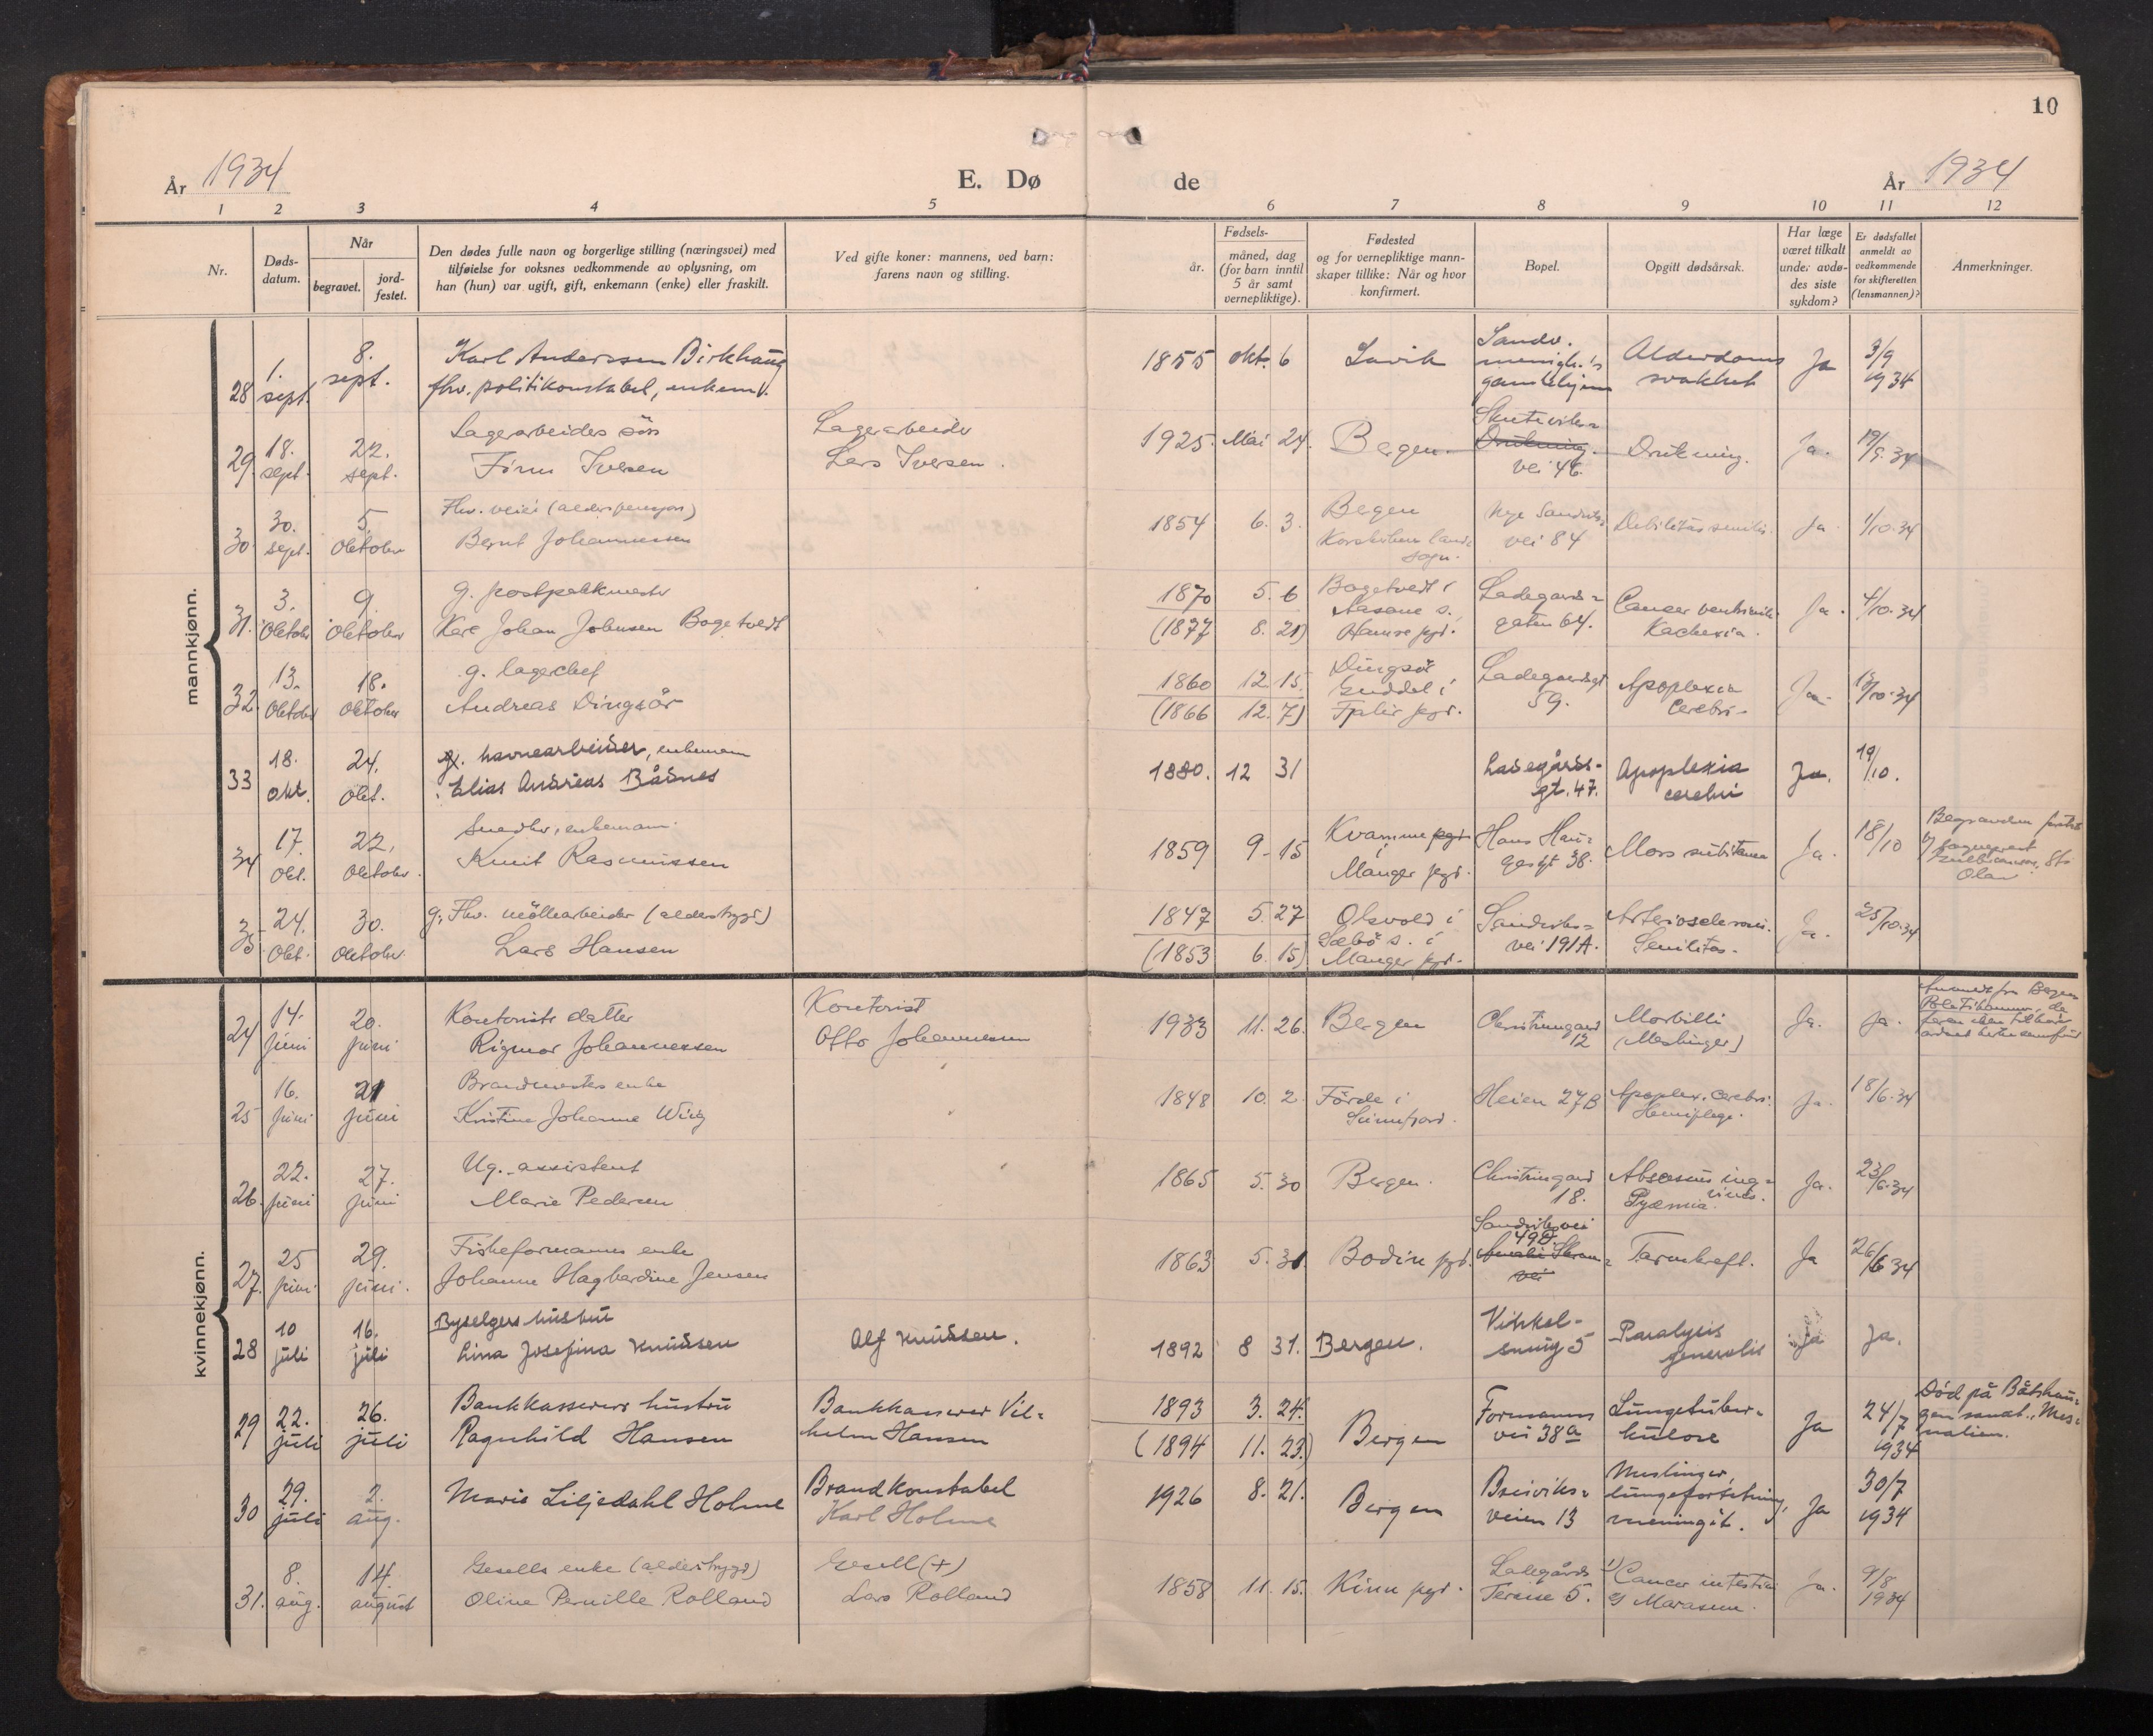 10
År 1934
E. Dø
de
År 1934
1 2 3 4 5 6 7 8 9 10 11 12
Nr.
Døds-
datum.
Når
begravet.
jord-
festet.
Den dødes fulle navn og borgerlige stilling (næringsvei) med
tilføielse for voksnes vedkommende av oplysning, om
han (hun) var ugift, gift, enkemann (enke) eller fraskilt.
Ved gifte koner: mannens, ved barn:
farens navn og stilling.
Fødsels-
år.
måned, dag
(for barn inntil
5 år samt
vernepliktige).
Fødested
og for vernepliktige mann-
skaper tillike: Når og hvor
konfirmert.
Bopel.
Opgitt dødsårsak.
Har læge
været tilkalt
under avdø-
des siste
sykdom?
Er dødsfallet
anmeldt av
vedkommende
for skifteretten
(lensmannen)?
Anmerkninger.
mannkjønn.
28
1.
sept.
8.
sept.
Karl Anderssen Birkhaug
fhv. politikonstabel, enkem.
1855 okt. 6
Lavik
Sandv.
menigh.'s
gamlehjem
Alderdoms
svakhet
Ja
3/9
1934
29
18.
sept.
22.
sept.
Lagerarbeides søn
Iversen
Lagerarbeider
Lars Iversen.
1925. Mai 24.
Bergen.
Skuteviks-
Drukning.
vei 46.
Drukning.
Ja.
19/9.34
30.
30.
sept.
5.
Oktober
Bernt Johannessen
1854 6. 3.
Bergen
Korskirken lands
sogn.
Nye Sandviks-
vei 84
Debilitas senilis.
Ja.
1/10.34
31.
3.
Oktober
9.
Oktober
g. postpakkmester
Kare Johan Johnsen Bogetvedt
1870 5. 6
(1877 8. 21)
Bogetvedt i
Aasane s.
Hamre pgd.
Ladegaards-
gaten 64.
Cancer ventriculi
Kachexia.
Ja.
4/10.34
32.
13.
Oktober
18.
Oktober
g. lagerchef
Andreas Dingsør
1860 12. 15.
(1866 12. 7)
Dingsør
Guddal i
Fjaler pgd.
Ladegaardsgt
59.
Apoplexia
Cerebri.
Ja.
15/10.34
33
18.
okt.
24.
okt.
havnearbeider, enkemann
Elias Andreas Bådnes
1880. 12 31
Ladegårds-
gt. 47.
Apoplexia
cerebri
Ja.
19/10.
34
17.
Okt.
22.
Oktober.
Snedker, enkemann.
Knut Rasmussen
1859 9-15
Kvamme pgd
i
Manger pgd.
Hans Hau-
gesgt 38.
Mors subitanea
Ja.
18/10
Olav
35.
24.
Okt.
30.
Oktober.
g. Fhv. møllearbeider (alderstrygd)
Lars Hansen
1847 5. 27
(1853 6. 15)
Sæbø s. i
Manger pgd.
Sandviks-
vei 191A.
Arteriosclerosis.
Senilitas.
Ja.
25/10.34
kvinnekjønn.
24
14.
juni
20.
juni
Kontorists datter
Rigmor Johannessen
Kontorist
Otto Johannessen
1933 11. 26.
Bergen
Christinegaard
12
Morbilli
(Meslinger)
Ja.
Ja.
25
16.
juni
21
juni
Brandmesters enke
Kristine Johanne Wiig
1848 10. 2.
Førde i
Sunnfjord.
Heien 27B
Apoplex. cerebri.
Hemiplegi.
Ja.
18/6.34
26.
22.
juni
27.
juni
Ug. assistent
Marie Pedersen
1865 5. 30
Bergen.
Christinegaard
18.
Pyæmia.
Ja.
23/6.34
27.
25
juni.
29.
juni.
Fiskeformanns enke
Johanne Hagbardine Jensen
1863 5. 31
Bodin pgd.
Sandviksvei
49D.
Amalie Skram-
vei
Tarmkreft.
Ja
26/6 34
28
10
juli
16.
juli
Byselgers hustru
Lina Josefina Knudsen
Alf Knudsen.
1892 8 31.
Bergen.
Vitikel-
smug 5
Paralysis
generalis
Ja
Ja.
29
22.
juli
26.
juli
Bankkasserers hustru
Ragnhild Hansen
Bankkasserer Vil-
helm Hansen
1893 3. 24.
(1894 11. 23.)
Bergen
Formanns
vei 38a
Lungetuber-
kulose
Ja
24/7
1934
Død på Båtshau-
gen sanat., Mes-
nalien.
30
29.
juli
2.
aug.
Marie Liljedahl Holme
Brandkonstabel
Karl Holme
1926 8. 21.
Bergen
Breiviks-
veien 13
Meslinger,
lungefortetning,
meningit.
Ja
30/7
1934
31.
8.
aug.
14.
august
Gesells enke (alderstrygd)
Oline Pernille Rolland
Gesell (+)
Lars Rolland
1858 11. 15.
Kinn pgd.
Ladegårds
Terasse 5.
1) Cancer intestini
2) Marasmus.
Ja.
9/8
1934